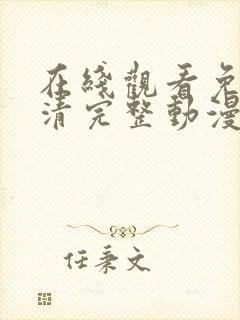 在綫觀看免
清完整動漫
任秉文